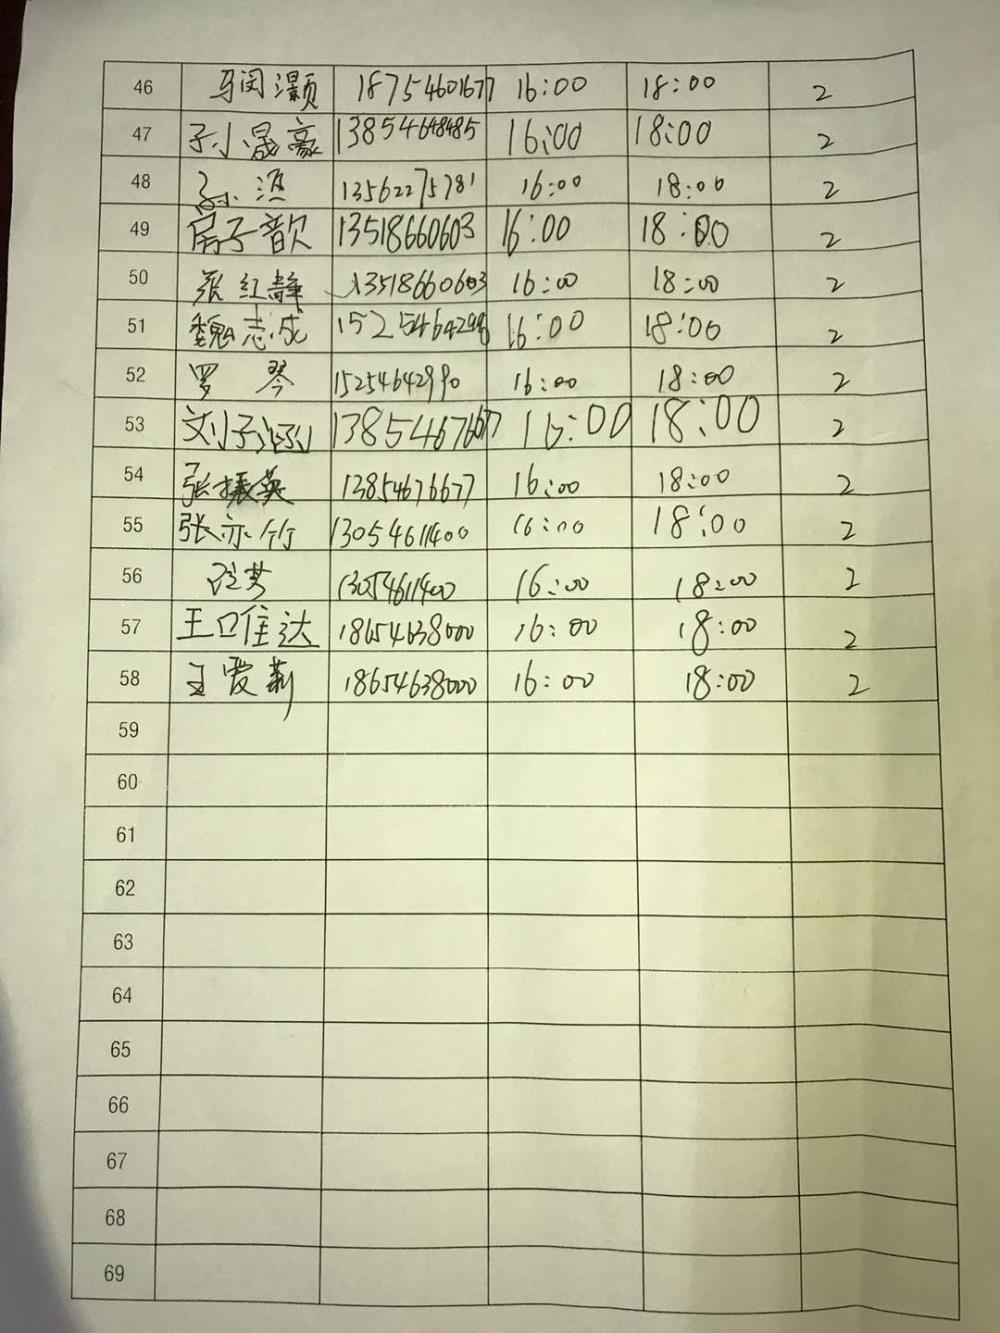 46 马闵灏颢 18754601677 16:00 18:00 2
47 孙晟豪 13854648485 16:00 18:00 2
48 孙 13562275781 16:00 18:00 2
49 房子歆 13518660603 16:00 18:00 2
50 张红静 13518660603 16:00 18:00 2
51 魏志成 16:00 18:00 2
52 罗琴 15254642990 16:00 18:00 2
53 刘子涵 16:00 18:00 2
54 张振英 13854676677 16:00 18:00 2
55 张亦竹 13054611400 16:00 18:00 2
56 13054611400 16:00 18:00 2
57 王唯达 18654638000 16:00 18:00 2
58 王爱莉 18654638000 16:00 18:00 2
59
60
61
62
63
64
65
66
67
68
69